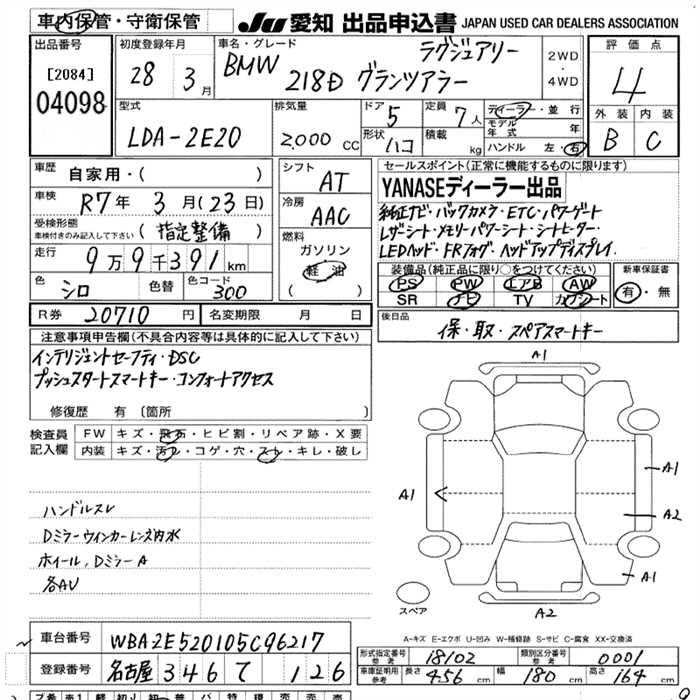 車内保管・守衛保管
JU 愛知 出品申込書 JAPAN USED CAR DEALERS ASSOCIATION
出品番号
[2084]
04098
初度登録年月
28年 3月
車名・グレード
BMW 218D グランツアラー
ラグジュアリー
2WD
・
4WD
評価点
4
外装 内装
B C
型式
LDA-2E20
排気量
2,000 CC
ドア 5
形状 ハコ
定員 7人
積載 kg
ディーラー・並行
モデル年式 年
ハンドル 左・右
車歴 自家用・( )
車検 R7年 3月(23日)
受検形態
車検付きのみ記入して下さい (指定整備)
走行 9万9千391km
色 シロ 色替 色コード 300
シフト AT
冷房 AAC
燃料
ガソリン
軽油
( )
セールスポイント(正常に機能するものに限ります)
YANASEディーラー出品
純正ナビ・バックカメラ・ETC・パワーゲート
レザーシート・メモリーパワーシート・シートヒーター・
LEDヘッド・FRフォグ・ヘッドアップディスプレイ・
装備品(純正品に限り○をつけてください)
PS PW エアB AW
SR ナビ TV カワシート
新車保証書
有・無
R券 20710円 名変期限 月 日
後日品
保・取・スペアスマートキー
注意事項申告欄(不具合内容等は具体的に記入して下さい)
インテリジェントセーフティ・DSC
プッシュスタートスマートキー・コンフォートアクセス
修復歴 有 〔箇所 〕
検査員
記入欄
FW キズ・飛石・ヒビ割・リペア跡・X要
内装 キズ・汚れ・コゲ・穴・スレ・キレ・破し
ハンドルスレ
Dミラーウィンカーレンズ内水
ホイール、DミラーA
各AU
A1
A1
A1
A2
A1
A2
スペア
A-キズ E-エクボ U-凹み W-補修跡 S-サビ C-腐食 XX-交換済
車台番号 WBA2E520105C96217
登録番号 名古屋 346 て 126
形式指定番号
参考 18102
類別区分番号
参考 0001
車庫証明用
参考 長さ 456 cm 幅 180 cm 高さ 164 cm